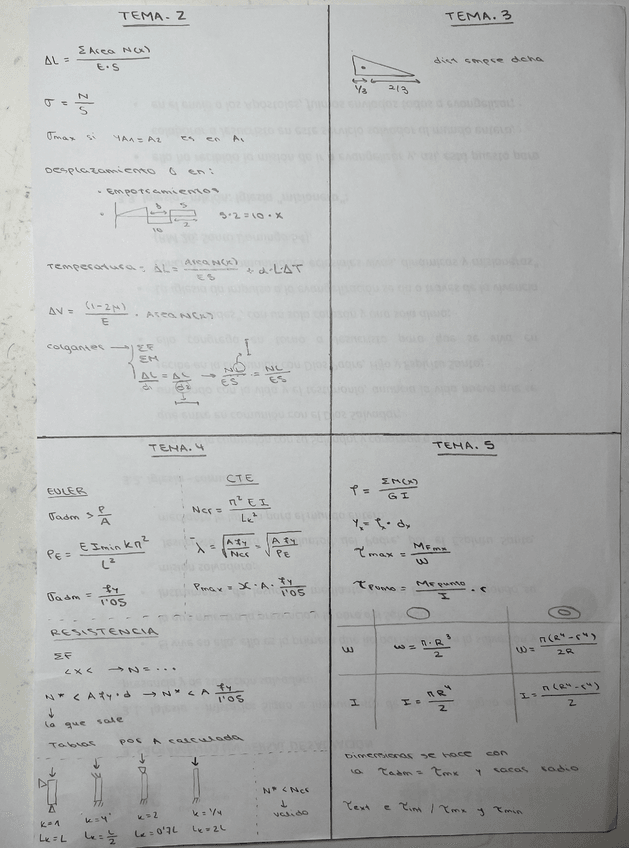 TEMA. 2
ΔL = ΣArea N(x) / E·S
σ = N / S
σmax si 4A1 = A2 es en A1
Desplazamiento 0 en:
· Empotramientos
· 5 5 10 2 5·2=10·x
Temperatura: ΔL = Area N(x) / ES + α·L·ΔT
ΔV = (1-2μ) / E · Area N(x)
colgantes → ΣF
ΣM
ΔL / di = ΔL / di → NL / ES = NL / ES
TEMA. 3
1/3 2/3
dist smpre dcha
TEMA. 4
EULER
σadm > P / A
PE = E Imin k π² / L²
σadm = fy / 1'05
CTE
Ncr = π² E I / Lk²
λ̄ = √(A fy / Ncr) = √(A fy / PE)
Pmax = X · A · fy / 1'05
RESISTENCIA
ΣF
<x< → N = ...
N* < A fy·d → N* < A fy / 1'05
↓
la que sale
Tablas por A calculada
k=1 k=4 k=2 k=1/4
Lk=L Lk=L/2 Lk=0'7L Lk=2L
N* < Ncr
↓
valido
TEMA. 5
φ = ΣM(x) / GI
γx = φ · dx
τmax = MFmx / W
τpunto = MFpunto / I · r
W W = π·R³ / 2 W = π(R⁴-r⁴) / 2R
I I = πR⁴ / 2 I = π(R⁴-r⁴) / 2
Dimensionar se hace con
la τadm = τmx y sacas radio
τext e τint / τmx y τmin